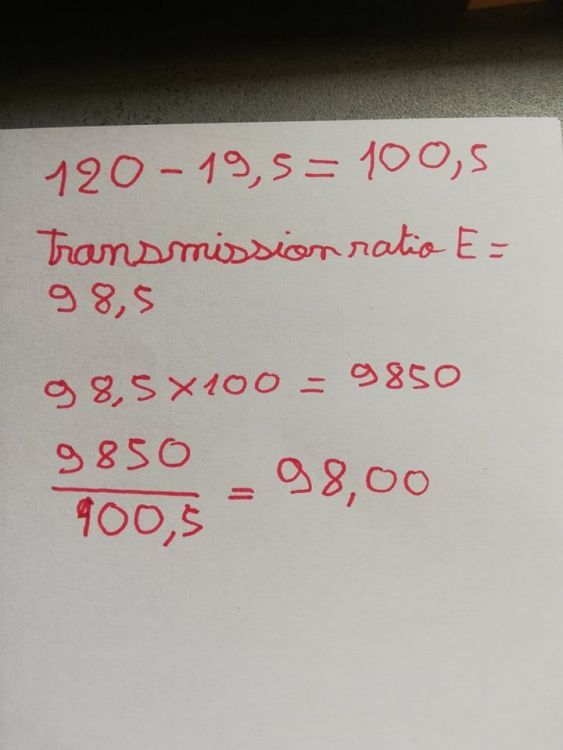 120 - 19,5 = 100,5
Transmission ratio E =
98,5
98,5 × 100 = 9850
9850
100,5
= 98,00